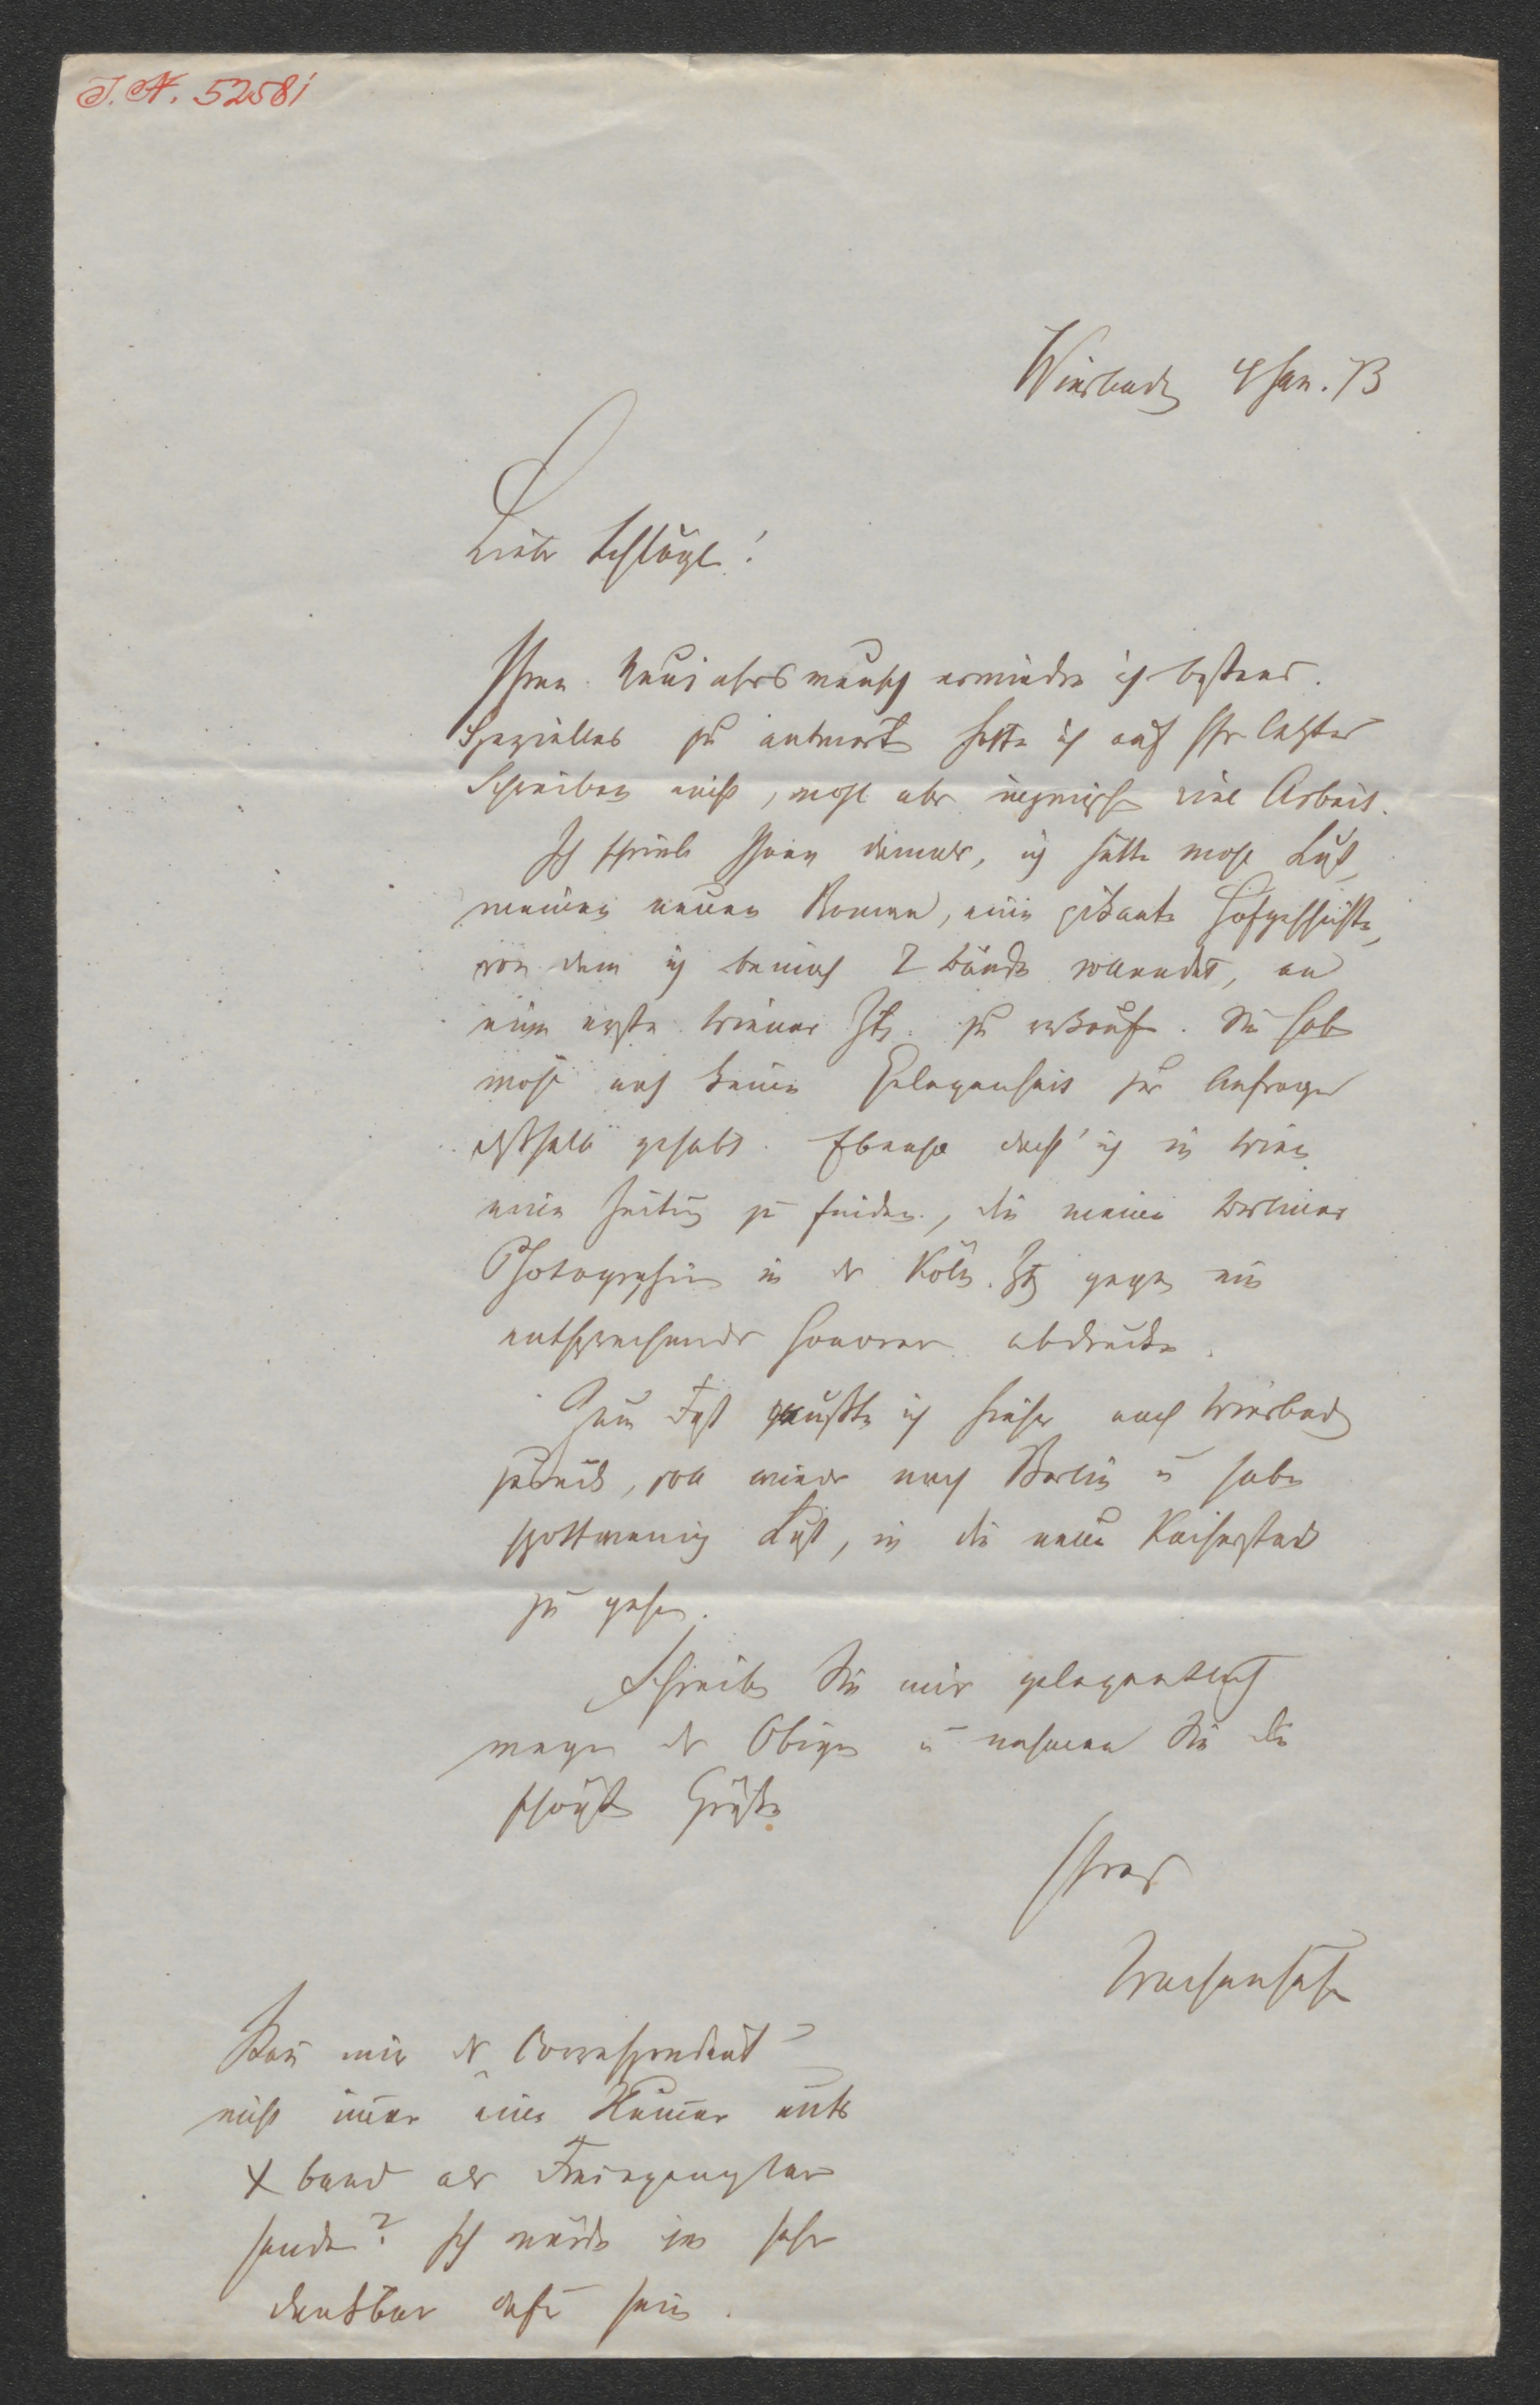 J. N. 52581
Wiesbaden 4 Jan. 73
Lieber Schlögl!
Ihren Neujahrswunsch erwiedre ich bestens.
Spezielles zu antworten hatte ich auf Ihr letztes
Schreiben nicht, wohl aber inzwischen viel Arbeit.
Ich schrieb Ihnen damals, ich hätte wohl Lust,
meinen neuen Roman, eine pikante Hofgeschichte,
von dem ich bereits 2 Bände vollendet, an
eine erste Wiener Ztg. zu verkaufen. Sie haben
wohl noch keine Gelegenheit zur Anfrage
deshalb gehabt. Ebenso dacht' ich in Wien
eine Zeitung zu finden, die meine Berliner
Photographien in der Köln. Ztg gegen ein
entsprechendes Honorar abdrucke.
Zum Fest mußte ich hieher nach Wiesbaden
zurück, soll wieder nach Berlin u habe
spottwenig Lust, in die neue Kaiserstadt
zu gehen.
Schreiben Sie mir gelegentlich
wegen des Obigen u nehmen Sie die
schönsten Grüße
Ihres
Wachenhusen
Kann mir der Correspondent
nicht immer eine Numer unter
X band als Freiexemplar
senden? Ich würde ihm sehr
dankbar dafür sein.